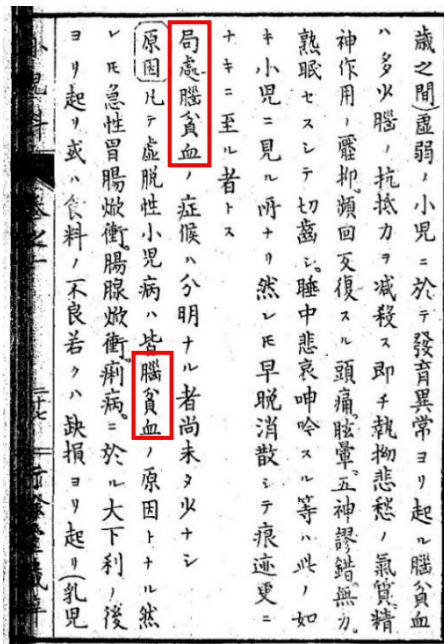 歳之間)虛弱ノ小児ニ於テ發育異常ヨリ起ル腦貧血
ハ多少腦ノ抗抵力ヲ減殺ス即チ執拗悲愁ノ氣質精
神作用ノ壓抑頻回反復スル頭痛眩暈五神謬錯無力
熟眠セスシテ切齒シ睡中悲哀呻吟スル等ハ此ノ如
キ小児ニ見ル所ナリ然レ𪜈早晩消散シテ痕迹更ニ
ナキニ至ル者トス
局處腦貧血ノ症候ハ分明ナル者尚未タ少ナシ
原因凡テ虛脱性小児病ハ皆腦貧血ノ原因トナル然
レ𪜈急性胃腸焮衝腸腺焮衝痢病ニ於ル大下利ノ後
ヨリ起リ或ハ食料ノ不良若クハ缺損ヨリ起リ(乳児